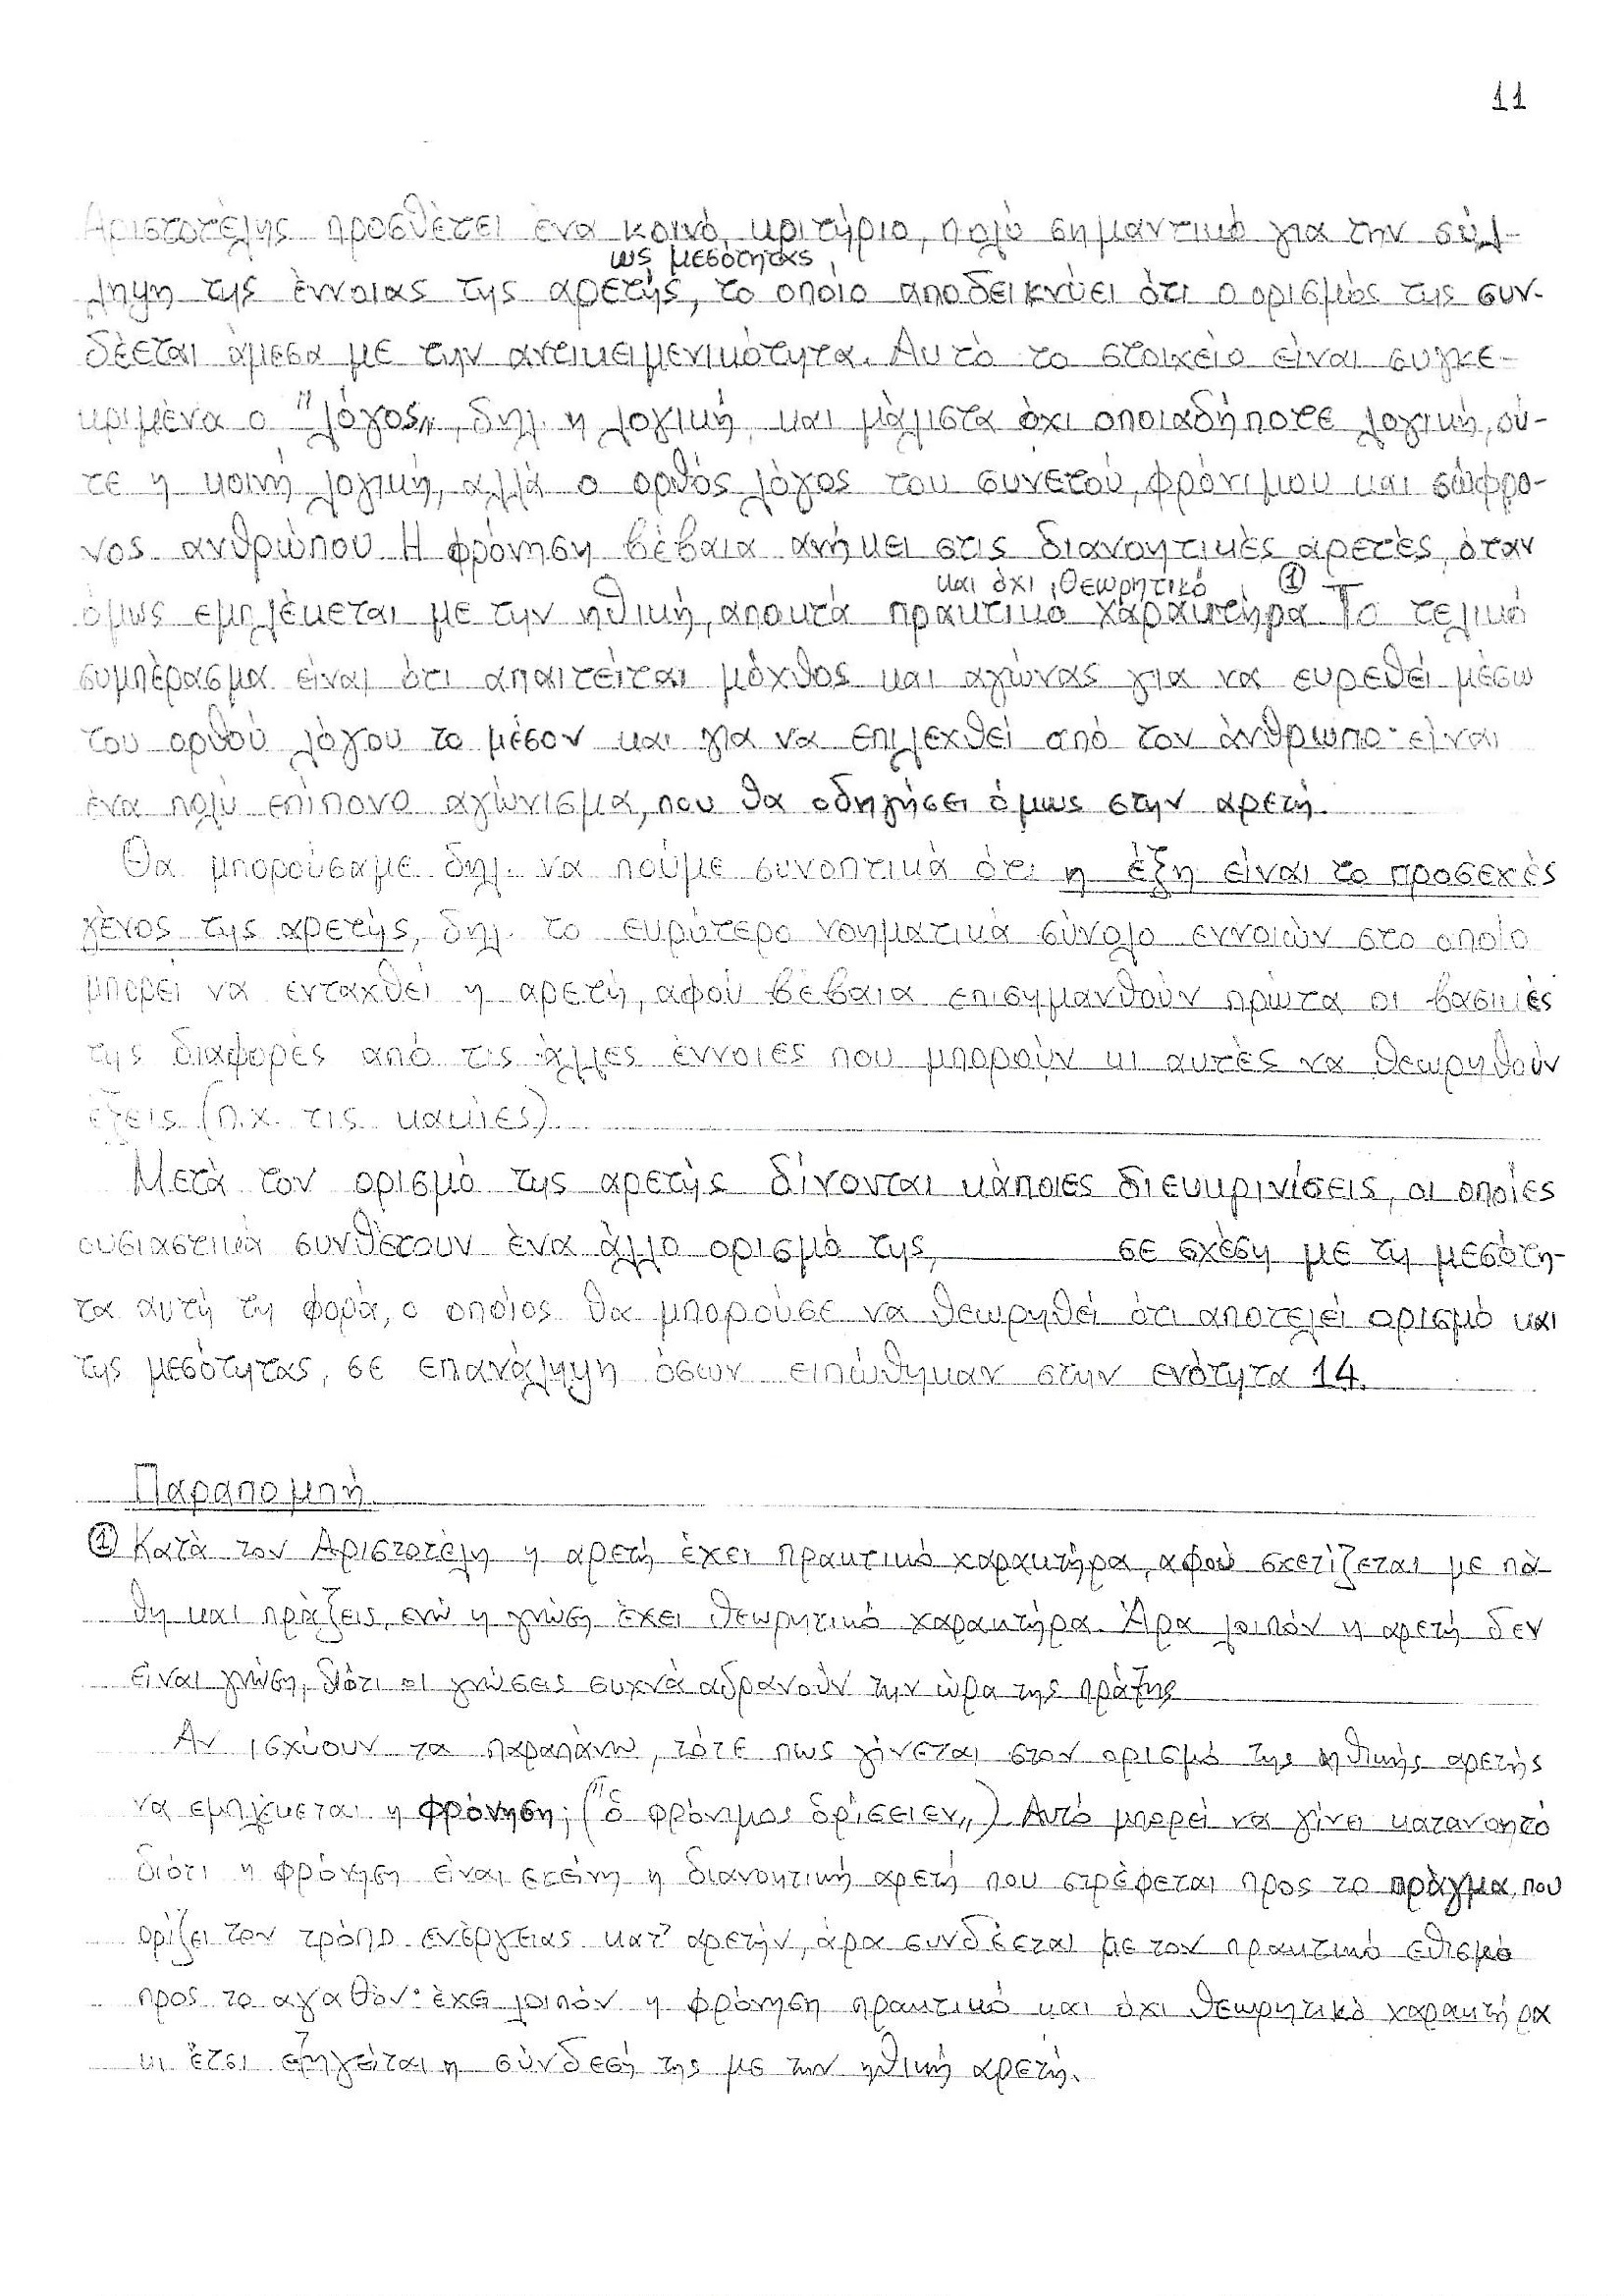 11
Αριστοτέλης προσθέτει ένα κοινό κριτήριο, πολύ σημαντικό για την σύλ-
ως μεσότητας
ληψη της έννοιας της αρετής, το οποίο αποδεικνύει ότι ο ορισμός της συν-
δέεται άμεσα με την αντικειμενικότητα. Αυτό το στοιχείο είναι συγκε-
κριμένα ο "λόγος„, δηλ. η λογική και μάλιστα όχι οποιαδήποτε λογική, ού-
τε η κοινή λογική, αλλά ο ορθός λόγος του συνετού, φρόνιμου και σώφρο-
νος ανθρώπου. Η φρόνηση βέβαια ανήκει στις διανοητικές αρετές, όταν
και όχι θεωρητικό ①
όμως εμπλέκεται με την ηθική, αποκτά πρακτικό χαρακτήρα. Το τελικό
συμπέρασμα είναι ότι απαιτείται μόχθος και αγώνας για να ευρεθεί μέσω
του ορθού λόγου το μέσον και για να επιλεχθεί από τον άνθρωπο· είναι
ένα πολύ επίπονο αγώνισμα, που θα οδηγήσει όμως στην αρετή.
Θα μπορούσαμε δηλ. να πούμε συνοπτικά ότι η έξη είναι το προσεχές
γένος της αρετής, δηλ. το ευρύτερο νοηματικά σύνολο εννοιών στο οποίο
μπορεί να ενταχθεί η αρετή, αφού βέβαια επισημανθούν πρώτα οι βασικές
της διαφορές από τις άλλες έννοιες που μπορούν κι αυτές να θεωρηθούν
έξεις (π.χ. τις κακίες).
Μετά τον ορισμό της αρετής δίνονται κάποιες διευκρινίσεις, οι οποίες
ουσιαστικά συνθέτουν ένα άλλο ορισμό της, σε σχέση με τη μεσότη-
τα αυτή τη φορά, ο οποίος θα μπορούσε να θεωρηθεί ότι αποτελεί ορισμό και
της μεσότητας, σε επανάληψη όσων ειπώθηκαν στην ενότητα 14.
Παραπομπή
① Κατά τον Αριστοτέλη η αρετή έχει πρακτικό χαρακτήρα, αφού σχετίζεται με πά-
θη και πράξεις, ενώ η γνώση έχει θεωρητικό χαρακτήρα. Άρα λοιπόν η αρετή δεν
είναι γνώση, διότι οι γνώσεις συχνά αδρανούν την ώρα της πράξης
Αν ισχύουν τα παραπάνω, τότε πως γίνεται στον ορισμό της ηθικής αρετής
να εμπλέκεται η φρόνηση; ("ὁ φρόνιμος ὁρίσειεν„) Αυτό μπορεί να γίνει κατανοητό
διότι η φρόνηση είναι εκείνη η διανοητική αρετή που στρέφεται προς το πράγμα, που
ορίζει τον τρόπο ενέργειας κατ' αρετήν, άρα συνδέεται με τον πρακτικό εθισμό
προς το αγαθόν· έχει λοιπόν η φρόνηση πρακτικό και όχι θεωρητικό χαρακτήρα
κι έτσι εξηγείται η σύνδεσή της με την ηθική αρετή.